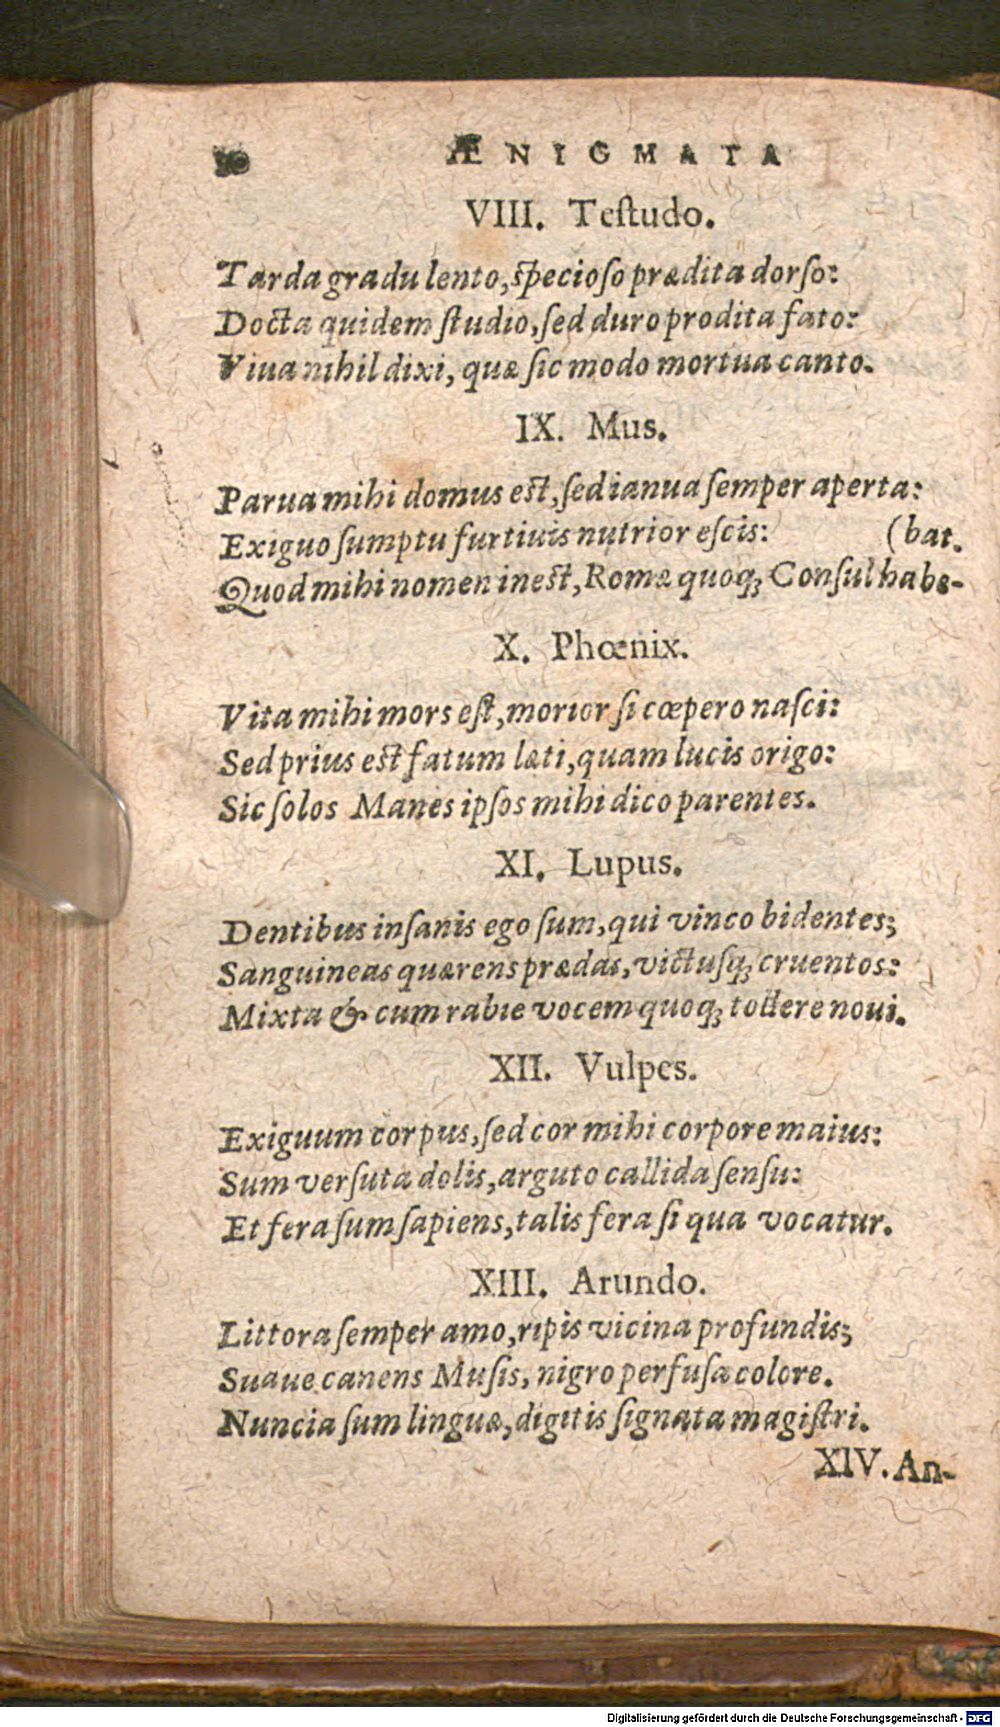 ÆNIGMATA
VIII. Teſtudo.
Tarda gradu lento, ſpecioſo prædita dorſo:
Docta quidem ſtudio, ſed duro prodita fato:
Viua nihil dixi, quæ ſic modo mortua canto.
IX. Mus.
Parua mihi domus eſt, ſed ianua ſemper aperta:
Exiguo ſumptu furtiuis nutrior eſcis: (bat.
Quod mihi nomen ineſt, Romæ quoq; Conſul habe-
X. Phœnix.
Vita mihi mors eſt, morior ſi cœpero naſci:
Sed prius eſt fatum læti, quam lucis origo:
Sic ſolos Manes ipſos mihi dico parentes.
XI. Lupus.
Dentibus inſanis ego ſum, qui vinco bidentes;
Sanguineas quærens prædas, victuſq; cruentos:
Mixta & cum rabie vocem quoq; tollere noui.
XII. Vulpes.
Exiguum corpus, ſed cor mihi corpore maius:
Sum verſuta dolis, arguto callida ſenſu:
Et fera ſum ſapiens, talis fera ſi qua vocatur.
XIII. Arundo.
Littora ſemper amo, ripis vicina profundis;
Suaue canens Muſis, nigro perfuſa colore.
Nuncia ſum linguæ, digitis ſignata magiſtri.
XIV. An-
Digitalisierung gefördert durch die Deutsche Forschungsgemeinschaft - DFG